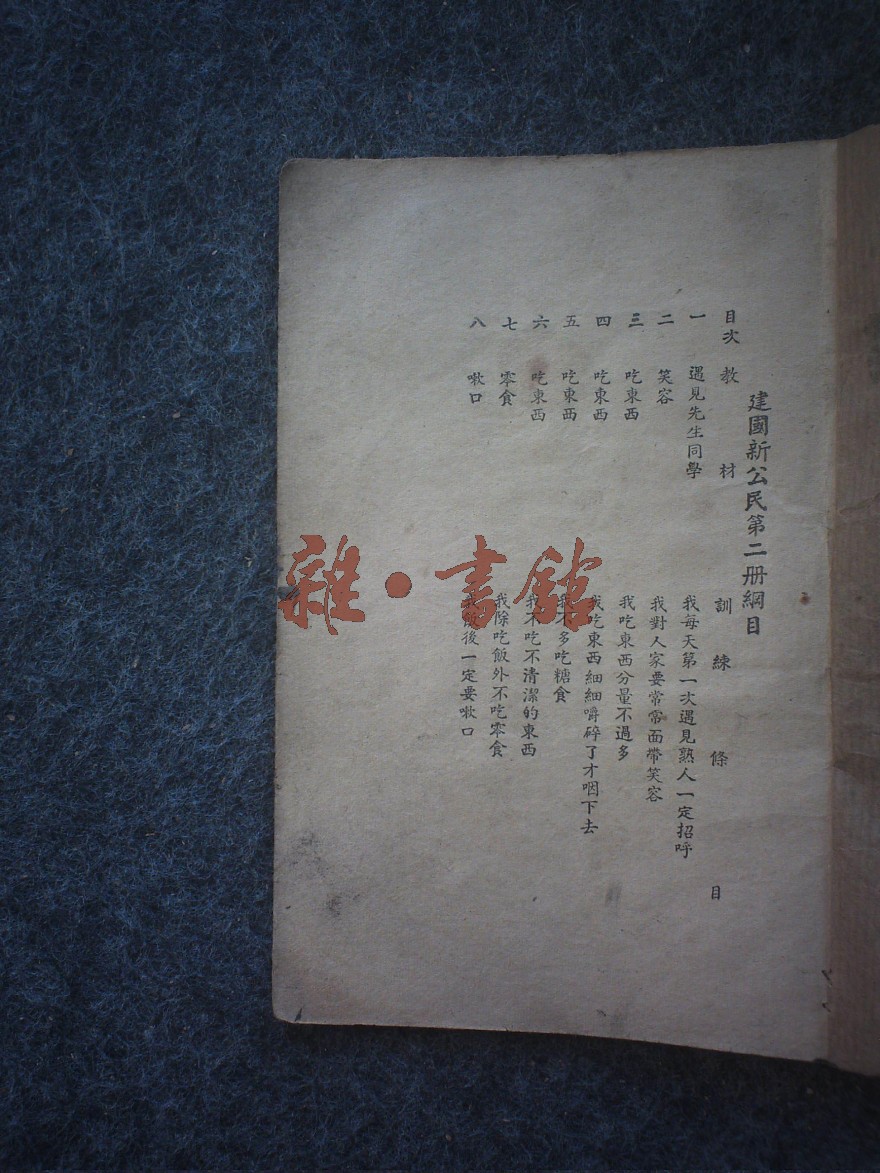 建國新公民第二册綱目
目次 教材 訓練條目
一 遇見先生同學 我每天第一次遇見熟人一定招呼
二 笑容 我對人家要常常面帶笑容
三 吃東西 我吃東西分量不過多
四 吃東西 我吃東西細細嚼碎了才咽下去
五 吃東西 我不多吃糖食
六 吃東西 我不吃不清潔的東西
七 零食 我除吃飯外不吃零食
八 嗽口 我飯後一定要嗽口
雜·書館